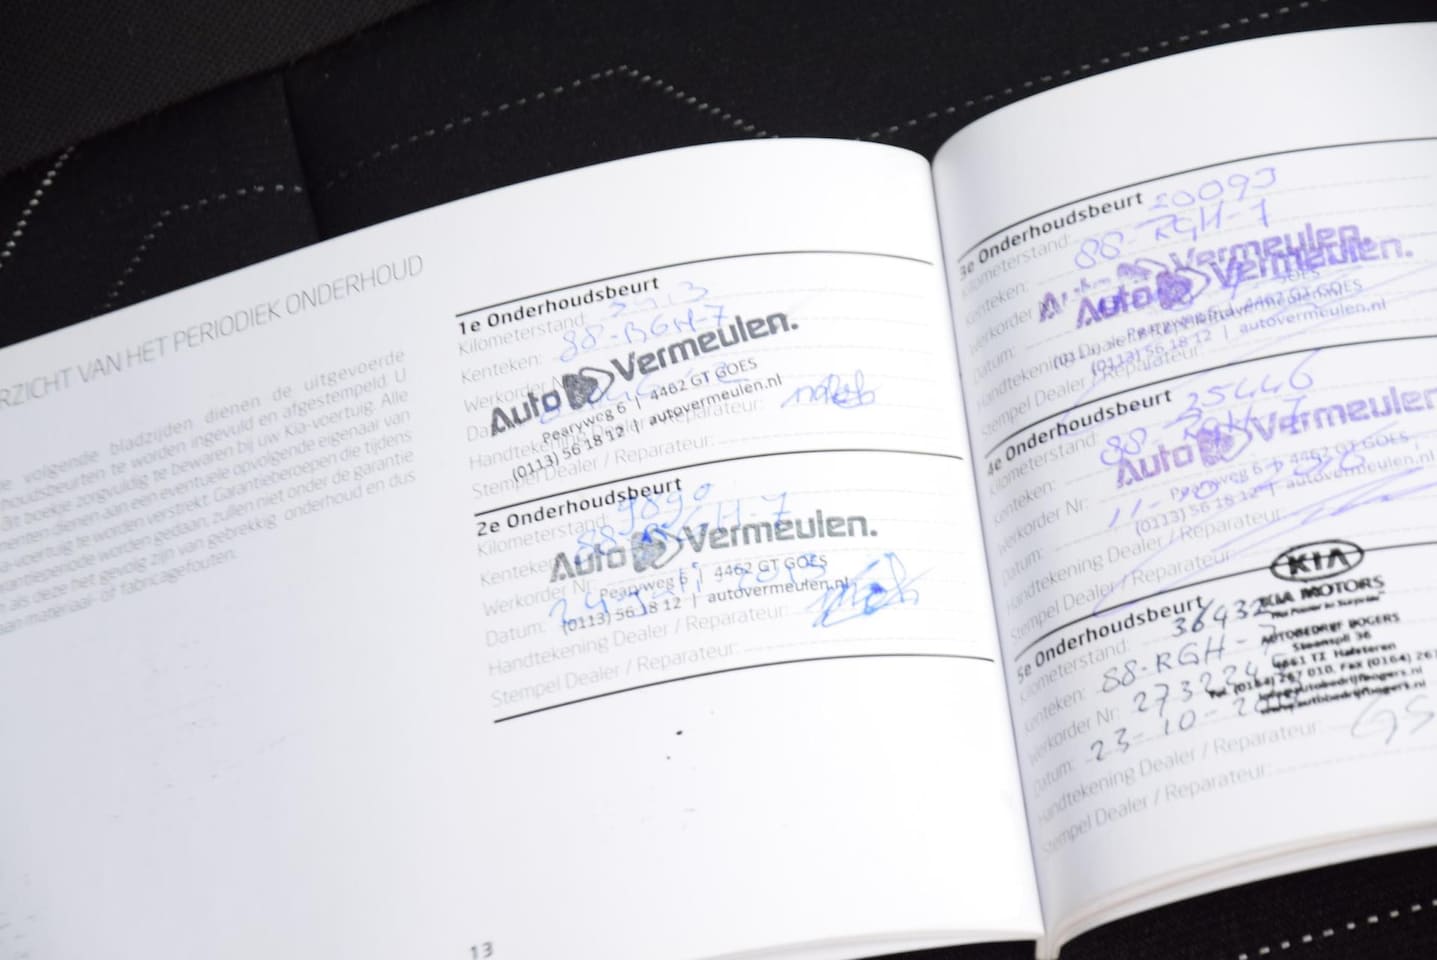 RZICHT VAN HET PERIODIEK ONDERHOUD
volgende bladzijden dienen de uitgevoerde
houdsbeurten te worden ingevuld en afgestempeld. U
dit boekje zorgvuldig te bewaren bij uw Kia-voertuig. Alle
menten dienen aan een eventuele opvolgende eigenaar van
a-voertuig te worden verstrekt. Garantieberoepen die tijdens
antieperiode worden gedaan, zullen niet onder de garantie
als deze het gevolg zijn van gebrekkig onderhoud en dus
aan materiaal- of fabricagefouten.
13
1e Onderhoudsbeurt
Kilometerstand:
Kenteken: 88-RGH-7
Werkorder
Auto Vermeulen.
Pearyweg 6 | 4462 GT GOES
(0113) 56 18 12 | autovermeulen.nl
Handtekening Dealer / Reparateur:
Stempel Dealer / Reparateur:
2e Onderhoudsbeurt
Kilometerstand: 9890
Kenteken: 88-RGH-7
Auto Vermeulen.
Werkorder Nr:
Pearyweg 6 | 4462 GT GOES
Datum:
(0113) 56 18 12 | autovermeulen.nl
Handtekening Dealer / Reparateur:
Stempel Dealer / Reparateur:
3e Onderhoudsbeurt
Kilometerstand: 20093
Kenteken: 88-RGH-7
Werkorder
Auto Vermeulen.
Pearyweg 4462 GT GOES
Datum:
(0113) 56 18 12 | autovermeulen.nl
Handtekening Dealer / Reparateur:
Stempel Dealer / Reparateur:
4e Onderhoudsbeurt
Kilometerstand: 25446
Kenteken: 88-RGH-7
Auto Vermeulen
Werkorder Nr:
Pearyweg 6 | 4462 GT GOES
Datum:
(0113) 56 18 12 | autovermeulen.nl
Handtekening Dealer / Reparateur:
Stempel Dealer / Reparateur:
5e Onderhoudsbeurt
Kilometerstand: 36432
Kenteken: 88-RGH-7
Werkorder Nr:
Datum: 23-10-
KIA
KIA MOTORS
The Power to Surprise
AUTOBEDRIJF BOGERS
Steenspil 36
4661 TZ Halsteren
Tel. (0164) 267 010, Fax (0164) 267
info@autobedrijfbogers.nl
www.autobedrijfbogers.nl
Handtekening Dealer / Reparateur:
Stempel Dealer / Reparateur: